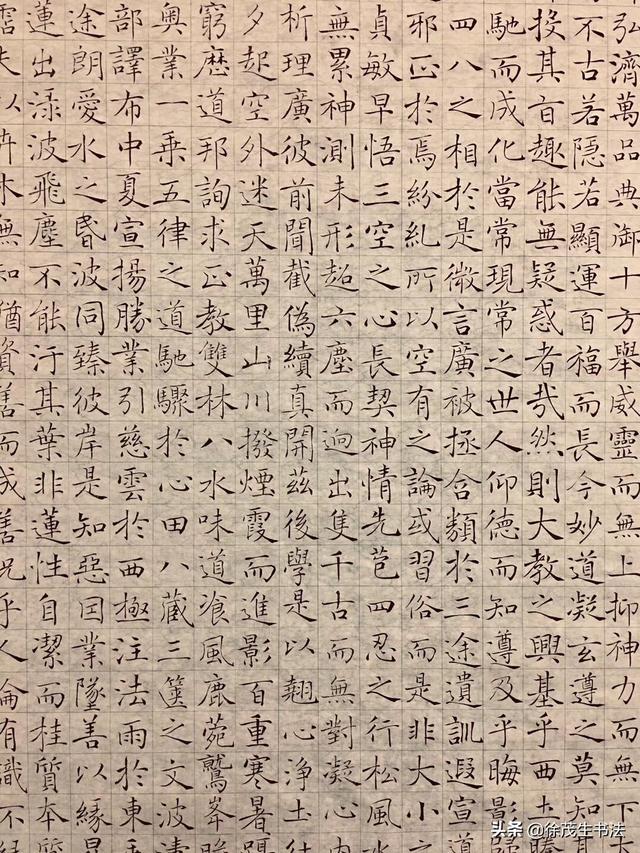 弘濟萬品典御十方舉威靈而無上抑神力而無下
不古若隱若顯運百福而長今妙道凝玄遵之莫知其
投其旨趣能無疑惑者哉然則大教之興基乎西土騰
馳而成化當常現常之世人仰德而知遵及乎晦影歸
四八之相於是微言廣被拯含類於三途遺訓遐宣道
邪正於焉紛糺所以空有之論或習俗而是非大小之
貞敏早悟三空之心長契神情先苞四忍之行松風水
無累神測未形超六塵而迥出隻千古而無對凝心内
析理廣彼前聞截偽續真開茲後學是以翹心淨土往
夕起空外迷天萬里山川撥煙霞而進影百重寒暑躡
窮歷道邦詢求正教雙林八水味道飡風鹿菀鷲峯
奧業一乘五律之道馳驟於心田八藏三篋之文波濤
部譯布中夏宣揚勝業引慈雲於西極注法雨於東
途朗愛水之昏波同臻彼岸是知惡因業墜善以緣昇
蓮出渌波飛塵不能汙其葉非蓮性自潔而桂質本質
夫以卉木無知猶資善而成善況乎人倫有識不
头条 @徐茂生书法